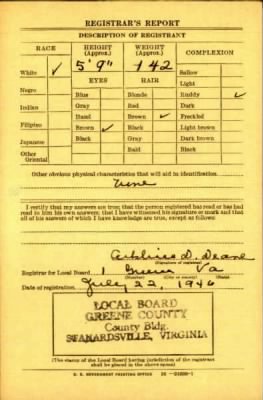 REGISTRAR'S REPORT
DESCRIPTION OF REGISTRANT
RACE HEIGHT (Approx.) WEIGHT (Approx.) COMPLEXION
5' 9" 142
White ✓ Sallow
EYES HAIR Light
Negro Blue Blonde Ruddy ✓
Indian Gray Red Dark
Hazel Brown ✓ Freckled
Filipino Brown ✓ Black Light brown
Japanese Black Gray Dark brown
Other Oriental Bald Black
Other obvious physical characteristics that will aid in identification
None
I certify that my answers are true; that the person registered has read or has had
read to him his own answers; that I have witnessed his signature or mark and that
all of his answers of which I have knowledge are true, except as follows:
D. Deane
(Signature of registrar)
Registrar for Local Board 1 Greene Va
(Number) (City or county) (State)
Date of registration July 22, 1946
LOCAL BOARD
GREENE COUNTY
County Bldg.
STANARDSVILLE, VIRGINIA
(The stamp of the Local Board having jurisdiction of the registrant
shall be placed in the above space)
U. S. GOVERNMENT PRINTING OFFICE